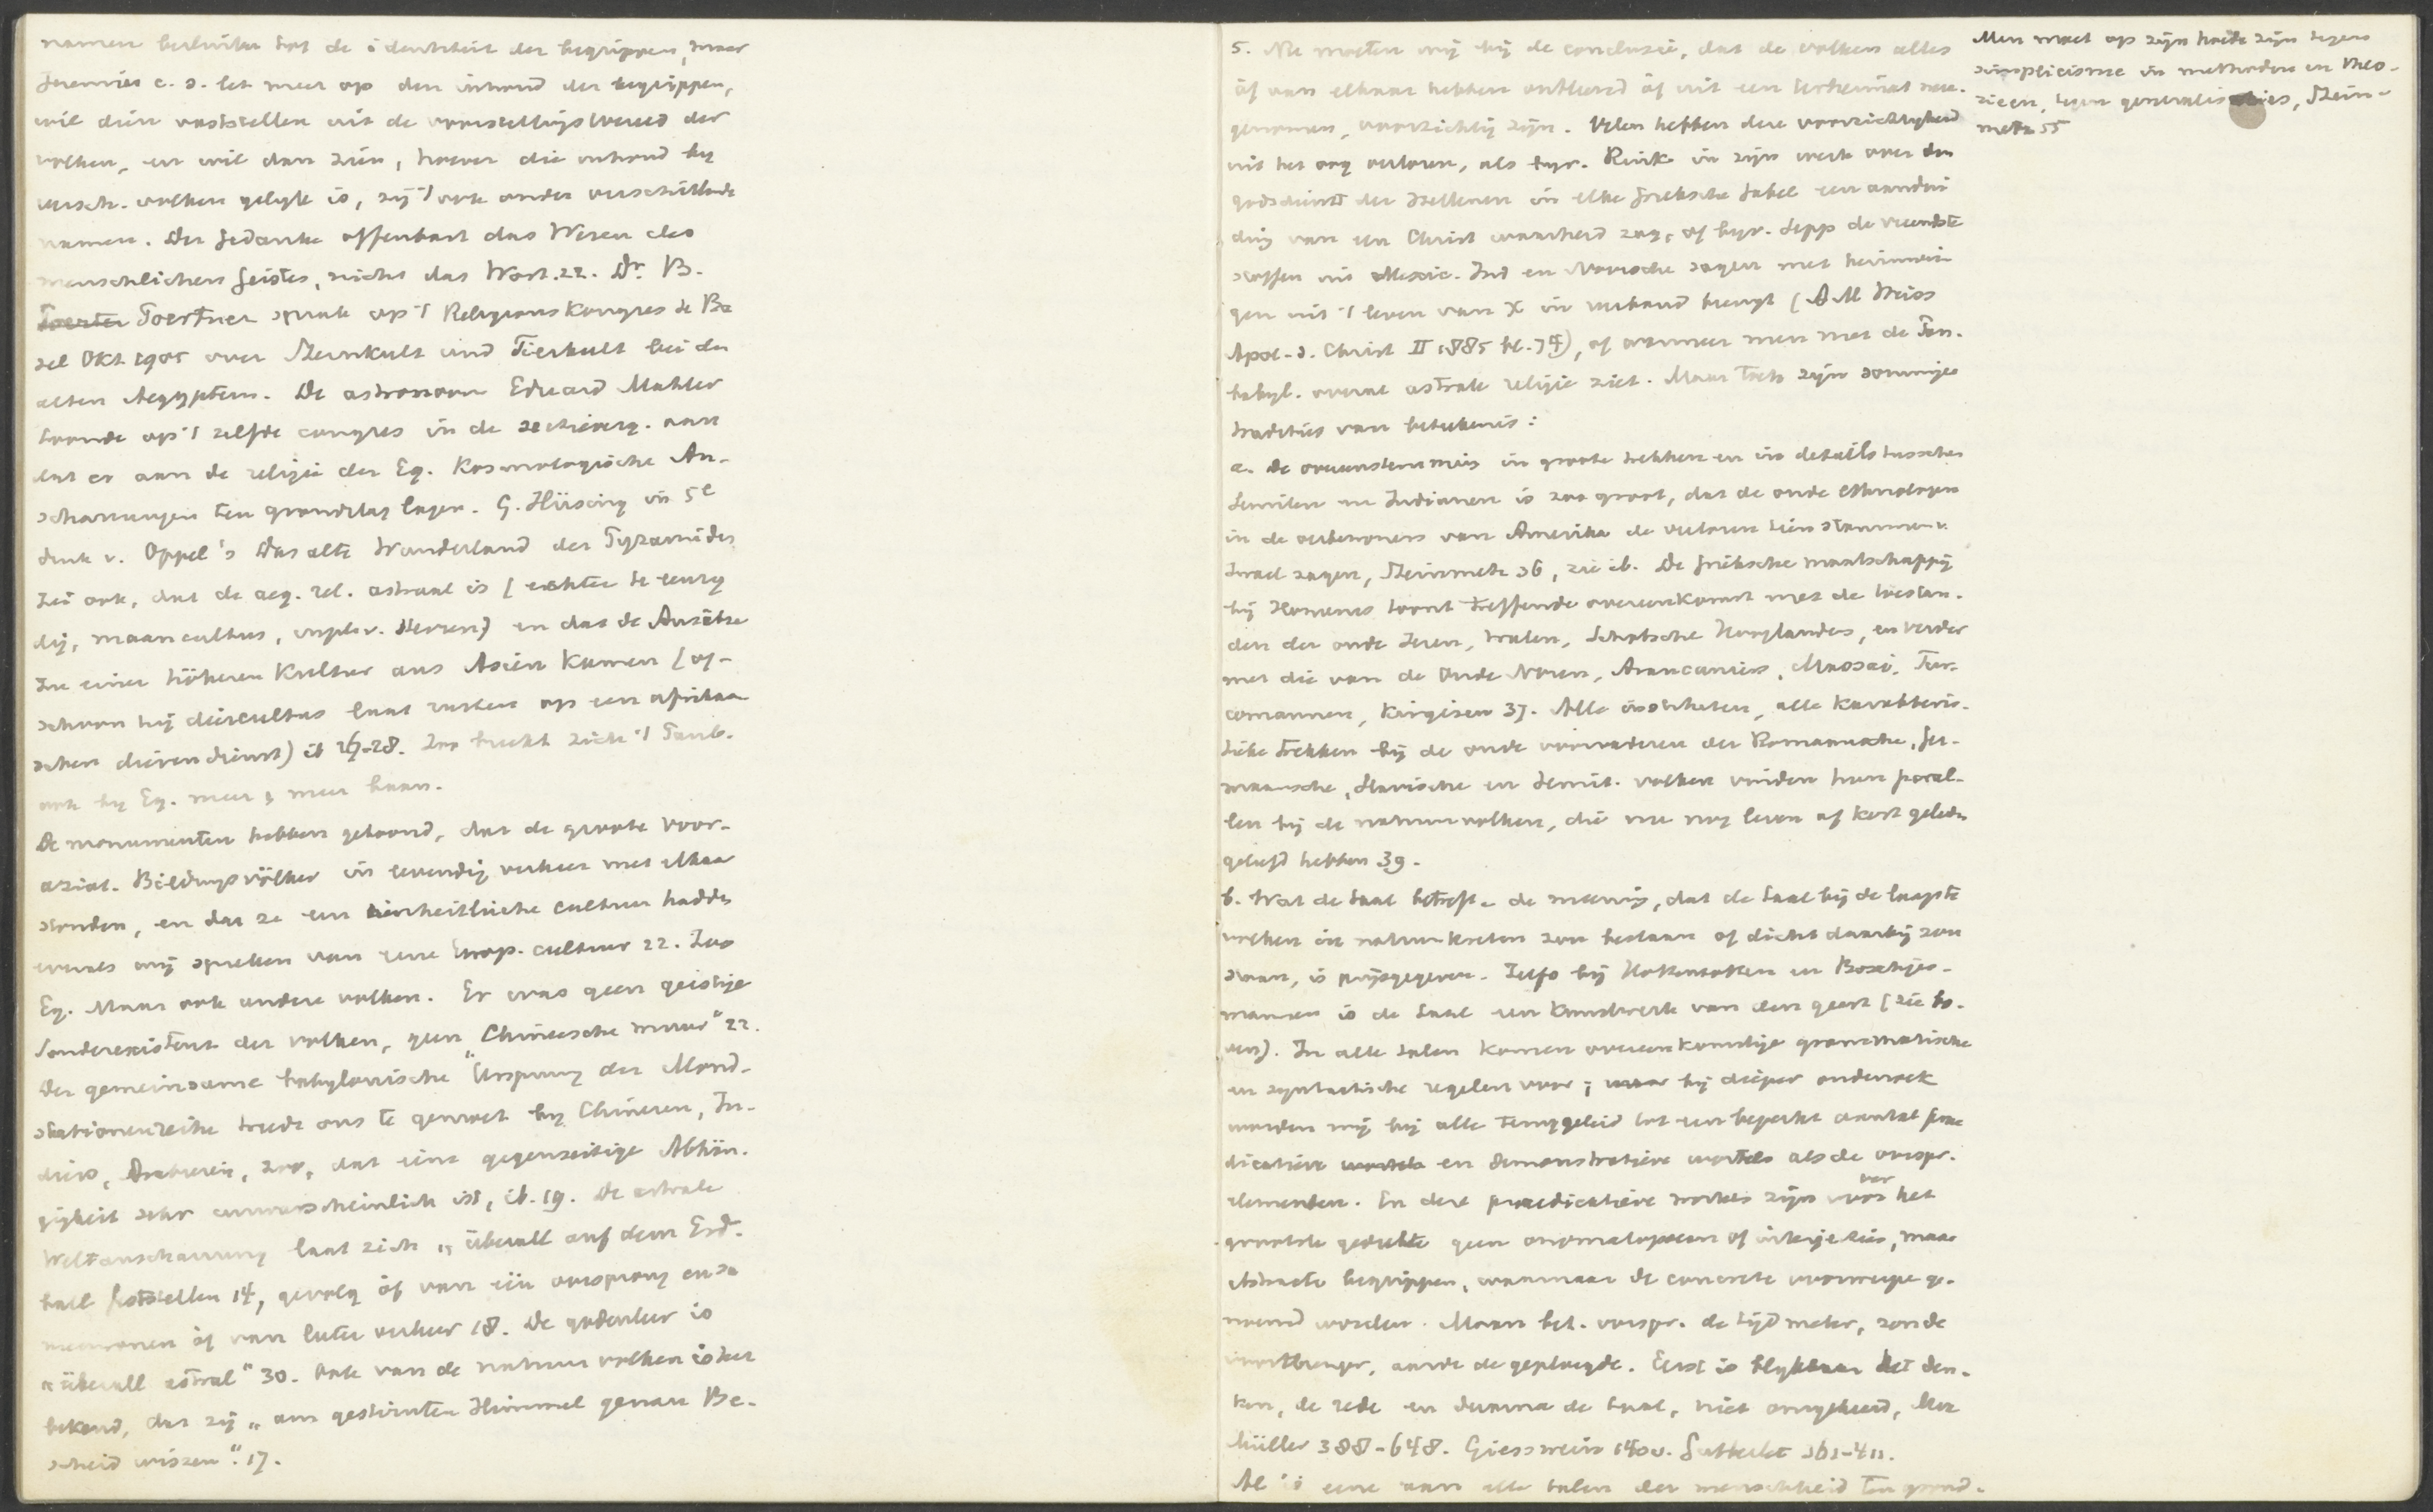 namen besluiten tot de identiteit der begrippen, maar
Jeremias c. s. let meer op den inhoud der begrippen,
wil dien vaststellen uit de voorstellingswereld der
volken, en wil dan zien, hoever die inhoud bij
versch. volken gelijk is, zij 't ook onder verschillende
namen. Der Gedanke offenbart das Wesen des
menschlichen Geistes, nicht das Wort. 22. Dr. B.
Toerfner sprak op 't Religionskongres te Ba
sel Okt 1905 over Sternkult und Tierkult bei den
alten Aegyptern. De astronoom Eduard Mahler
toonde op 't zelfde congres in de aan
dat er aan de religie der Eg. Kosmologische An-
schauungen ten grondslag lagen. G. Hüsing in 5e
druk v. Oppel's Das alte Wunderland der Pyramiden
zei ook, dat de aeg. rel. astraal is (echter te eenzij
dig, maancultus, invloed v. sterren) en dat de Ansätze
zu einer höheren Kultur aus Asien kamen (of-
schoon hij diercultus laat rusten op een afrikaa
schen dierendienst) ib 27-28. Zoo breekt zich 't Panb.
ook bij Eg. meer & meer baan.
De monumenten hebben getoond, dat de groote voor-
aziat. Bildungsvölker in levendig verkeer met elkaar
stonden, en dat ze een einheitliche cultuur hadden
evenals wij spreken van eene Europ. cultuur 22. Zoo
Eg. Maar ook andere volken. Er was geen geistige
Sonderexistenz der volken, geen „Chineesche muur" 22.
Der gemeinsame babylonische Ursprung der Mond-
stationenreihe treedt ons te gemoet bij Chinezen, In-
diërs, Arabieren, zoo, dat eine gegenseitige Abhän-
gigkeit sehr unwahrscheinlich ist, ib. 19. De astrale
Weltanschauung laat zich „überall auf dem Erd-
ball feststellen 14, gevolg òf van één oorsprong
òf van later verkeer 18. De godenleer is
„überall astral" 30. Ook van de natuurvolken is het
bekend, dat zij „am gestirnten Himmel genau Be-
scheid wissen". 17.
5. Nu moeten wij bij de conclusie, dat de volken alles
òf van elkaar hebben ontleend òf uit een oerheimat mee-
genomen, voorzichtig zijn. Velen hebben deze voorzichtigheid
uit het oog verloren, als bijv. Rinck in zijn werk over den
godsdienst der Hellenen in elke Grieksche fabel een aandui
ding van een Christ waarheid zag, of bijv. Sepp de vreemdste
stoffen uit Mexic. Ind en Noorsche sagen met herinnerin
gen uit 't leven van X in verband brengt (A M Weiss
Apol. d. Christ II 1885 bl. 74), of wanneer men met de Pan-
babyl. overal astrale religie ziet. Maar toch zijn sommige
tradities van beteekenis:
a. De overeenstemming in groote trekken en in details tusschen
Semiten en Indianen is zoo groot, dat de oude ethnologen
in de oerbewoners van Amerika de verloren tien stammen v.
Israel zagen, Steinmetz 36, zie ib. De Grieksche maatschappij
bij Homerus toont treffende overeenkomst met de toestan-
den der oude Ieren, Walen, Schotsche Hooglanders, en verder
met die van de Oude Noren, Araucaniers, Massai, Tur-
comannen, Kirgisen 37. Alle instituten, alle karakteris-
tieke trekken bij de oude voorvaderen der Romaansche, Ger-
maansche, Slavische en Semit. volken vinden hun paral-
len bij de natuurvolken, die nu nog leven of kort geleden
geleefd hebben 39.
b. Wat de taal betreft. de meening, dat de taal bij de laagste
volken in natuurkreten zou bestaan of dicht daarbij zou
staan, is prijsgegeven. Zelfs bij Hottentotten en Boschjes-
mannen is de taal een kunstwerk van den geest (zie bo-
ven). In alle talen komen overeenkomstige grammatische
en syntactische regelen voor; maar bij dieper onderzoek
worden wij bij alle teruggeleid tot een beperkt aantal prae
dicatieve en demonstratieve wortels als de oorspr.
elementen. En deze praedicatieve wortels zijn voor ver het
grootste gedeelte geen onomatopoeen of interjecties, maar
abstracte begrippen, waarnaar de concrete voorwerpen ge-
noemd worden. Maan bet. oorspr. de tijdmeter, zon de
voortbrenger, aarde de geploegde. Eerst is blijkbaar het den-
ken, de rede en daarna de taal, niet omgekeerd, Max
Müller 388-648. Giesswein 140v. Gutberlet 361-411.
Al is eene aan alle talen der menschheid ten grond-
Men moet op zijn hoede zijn tegen
simplicisme in methoden en theo-
rieën, tegen generalisaties, Stein-
metz 55